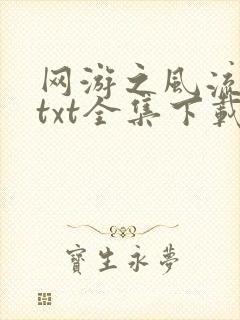 网游之风流
txt全集下载
寶生永夢